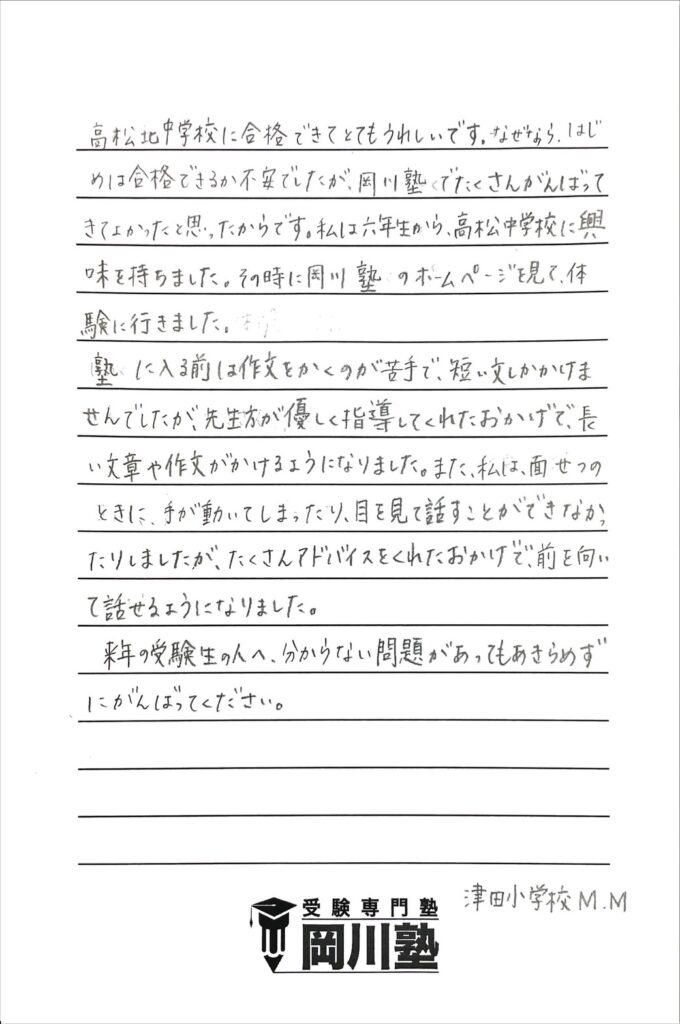 高松北中学校に合格できてとてもうれしいです。なぜなら、はじ
めは合格できるか不安でしたが、岡川塾でたくさんがんばって
きてよかったと思ったからです。私は六年生から、高松中学校に興
味を持ちました。その時に岡川塾のホームページを見て、体
験に行きました。
塾に入る前は作文をかくのが苦手で、短い文しかかけま
せんでしたが、先生方が優しく指導してくれたおかげで、長
い文章や作文がかけるようになりました。また、私は、面せつの
ときに、手が動いてしまったり、目を見て話すことができなかっ
たりしましたが、たくさんアドバイスをくれたおかげで、前を向い
て話せるようになりました。
来年の受験生の人へ、分からない問題があってもあきらめず
にがんばってください。
津田小学校M.M
受験専門塾
岡川塾